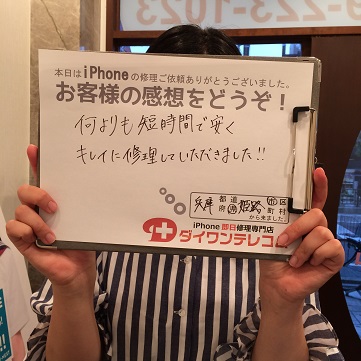 9-223-1023
本日はiPhoneの修理ご依頼ありがとうございました。
お客様の感想をどうぞ！
何よりも短時間で安く
キレイに修理していただきました!!
兵庫 都道府県 姫路 市区町村
から来ました。
iPhone 即日修理専門店
ダイワンテレコム